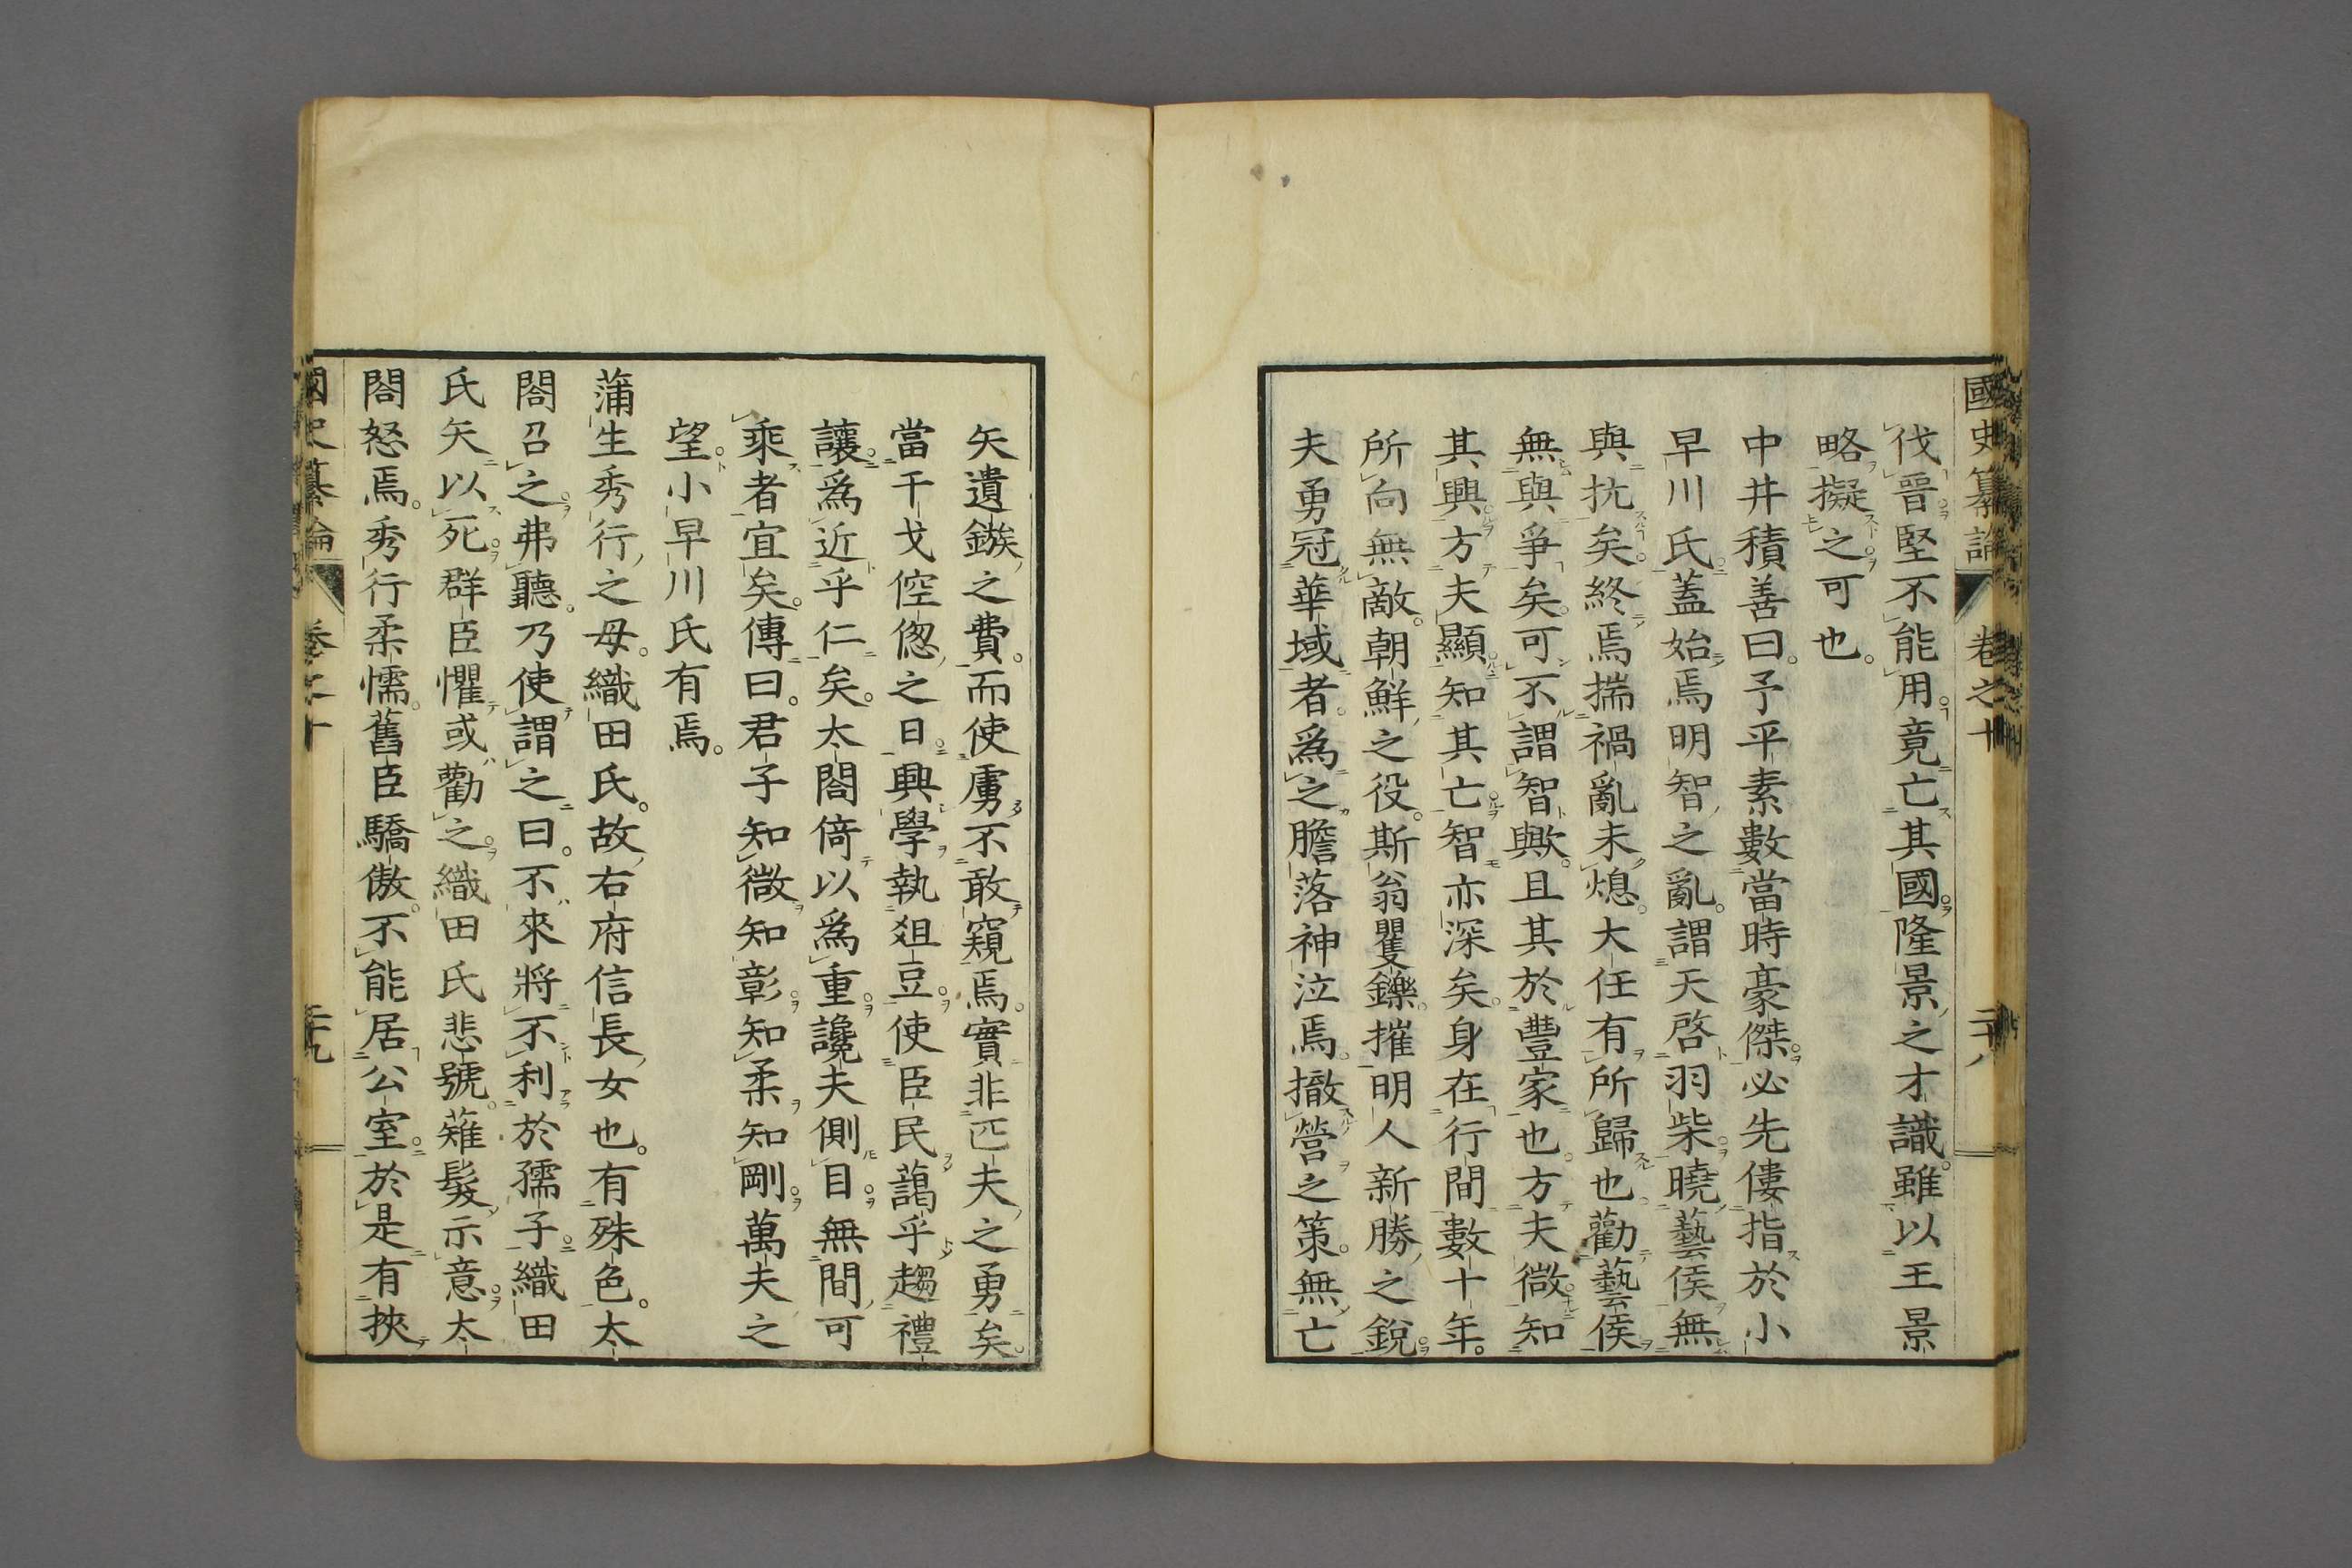 國史纂論 卷之十 二十八
伐晉堅不能用竟亡其國隆景之才識雖以王景
略擬之可也。
中井積善曰。予平素數當時豪傑必先僂指於小
早川氏蓋始焉明智之亂。謂天啓羽柴曉藝侯無
與抗矣終焉揣禍亂未熄。大任有所歸也勸藝侯
無與爭矣。可不謂智歟。且其於豐家也。方夫微知
其興方夫顯知其亡智亦深矣。身在行間數十年。
所向無敵。朝鮮之役。斯翁矍鑠。摧明人新勝之銳。
夫勇冠華域者。爲之膽落神泣焉。撤營之策。無亡
矢遺鏃之費。而使虜不敢窺焉。實非匹夫之勇矣。
當干戈倥偬之日。興學執俎豆。使臣民藹乎趨禮
讓。爲近乎仁矣。太閤倚以爲重。讒夫側目。無間可
乘者宜矣。傳曰。君子知微知彰。知柔知剛。萬夫之
望。小早川氏有焉。
蒲生秀行之母。織田氏。故右府信長女也。有殊色。太
閤召之。弗聽。乃使謂之曰。不來將不利於孺子。織田
氏矢以死。群臣懼或勸之。織田氏悲號。薙髮示意。太
閤怒焉。秀行柔懦。舊臣驕傲。不能居公室。於是有挾
國史纂論 卷之十 二十九